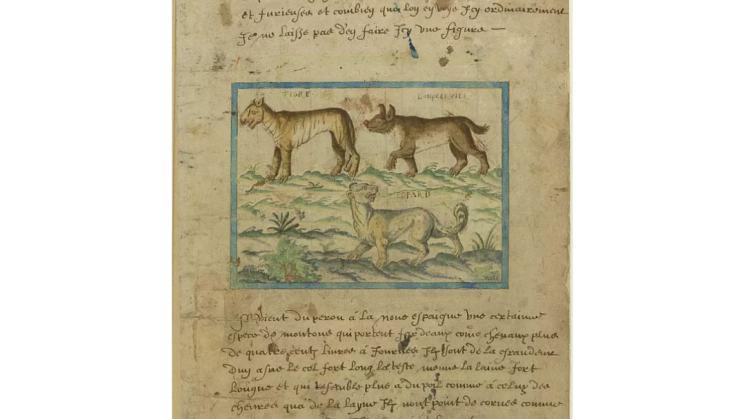 et furieuses et combien quil soy en voye Jcy ordinairement
Je ne laisse pas d'ey faire Jcy Vne figure —
TIGRE
LEOPARD
Il Vient du perou á la noue espaigne Vne certaine
espece de moutons qui portent fardeaux come cheuaux plus
de quatre cents liures á Journee Ilz sont de la grandeur
Duy asne le col fort long la teste, menue la laine fort
Longue et qui resemble plus á du poil comme á celuy des
cheures qua de la layne Ilz nont point de cornes comme